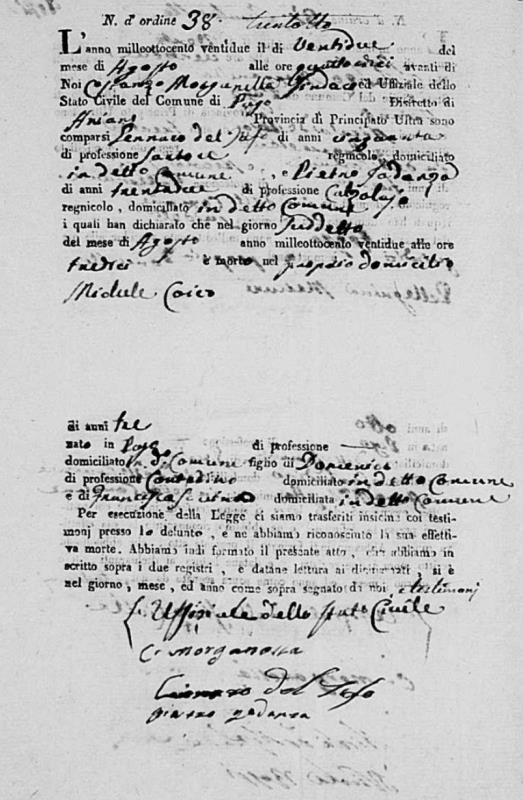 N. d'ordine 38. trentotto
L'anno milleottocento ventidue il di Ventidue del
mese di Agosto alle ore quattordici avanti di
Noi Costanzo Morganella Sindaco ed Uffiziale dello
Stato Civile del Comune di Distretto di
Ariano Provincia di Principato Ultra sono
comparsi Gennaro del di anni cinquanta
di professione Sartore regnicolo domiciliato
in detto Comune , e Pietro
di anni trentadue di professione Calzolajo
regnicolo , domiciliato in detto Comune
i quali han dichiarato che nel giorno suddetto
del mese di Agosto anno milleottocento ventidue alle ore
tredici è morto nel proprio domicilio
Michele Coico
di anni tre
nato in di professione —
domiciliato in d.o Comune figlio di Domenico
di professione Contadino domiciliato in detto Comune
e di Francesca domiciliata in detto Comune
Per esecuzione della Legge ci siamo trasferiti insieme coi testi-
monj presso lo defunto , e ne abbiamo riconosciuto la sua effetti-
va morte. Abbiamo indi formato il presente atto , che abbiamo in-
scritto sopra i due registri , e datane lettura ai dichiaranti , si è
nel giorno , mese , ed anno come sopra segnato da noi e testimonj
L'Uffiziale dello Stato Civile
C. Morganella
Gennaro del